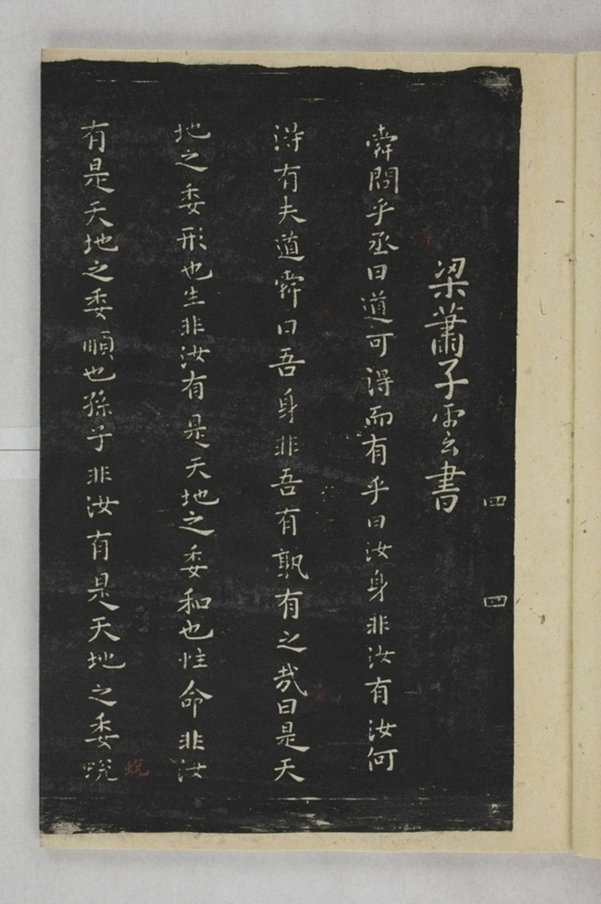 梁蕭子雲書
四 四
舜問乎丞曰道可得而有乎曰汝身非汝有汝何
得有夫道舜曰吾身非吾有孰有之哉曰是天
地之委形也生非汝有是天地之委和也性命非汝
有是天地之委順也孫子非汝有是天地之委蛻
蛻